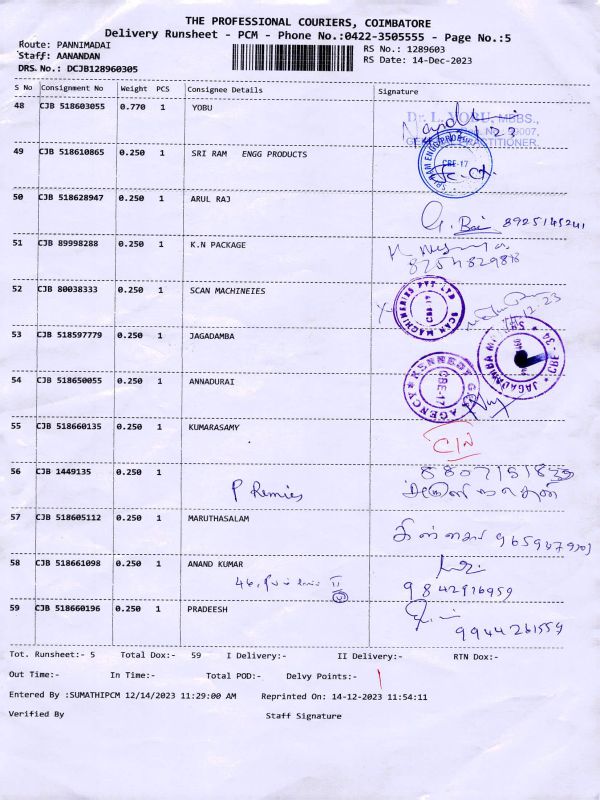 THE PROFESSIONAL COURIERS, COIMBATORE
Delivery Runsheet - PCM - Phone No.:0422-3505555 - Page No.:5
Route: PANNIMADAI
RS No.: 1289603
Staff: AANANDAN
RS Date: 14-Dec-2023
DRS No.: DCJB128960305
S No Consignment No Weight PCS Consignee Details Signature
48 CJB 518603055 0.770 1 YOBU
Dr. L. YOBU, MBBS.,
49 CJB 518610865 0.250 1 SRI RAM ENGG PRODUCTS
CBE-17
50 CJB 518628947 0.250 1 ARUL RAJ
G. Bai 8925145241
51 CJB 89998288 0.250 1 K.N PACKAGE
52 CJB 80038333 0.250 1 SCAN MACHINEIES
SCAN MACHINERIES PVT LTD
CBE 17
53 CJB 518597779 0.250 1 JAGADAMBA
JAGADAMBA
CBE - 34
54 CJB 518650055 0.250 1 ANNADURAI
KENNEDY
AGENCY
CBE-17
55 CJB 518660135 0.250 1 KUMARASAMY
C/N
56 CJB 1449135 0.250 1
P Remies
57 CJB 518605112 0.250 1 MARUTHASALAM
58 CJB 518661098 0.250 1 ANAND KUMAR
46,
II
9842916959
59 CJB 518660196 0.250 1 PRADEESH
9944261559
Tot. Runsheet:- 5 Total Dox:- 59 I Delivery:- II Delivery:- RTN Dox:-
Out Time:- In Time:- Total POD:- Delvy Points:-
Entered By :SUMATHIPCM 12/14/2023 11:29:00 AM Reprinted On: 14-12-2023 11:54:11
Verified By Staff Signature